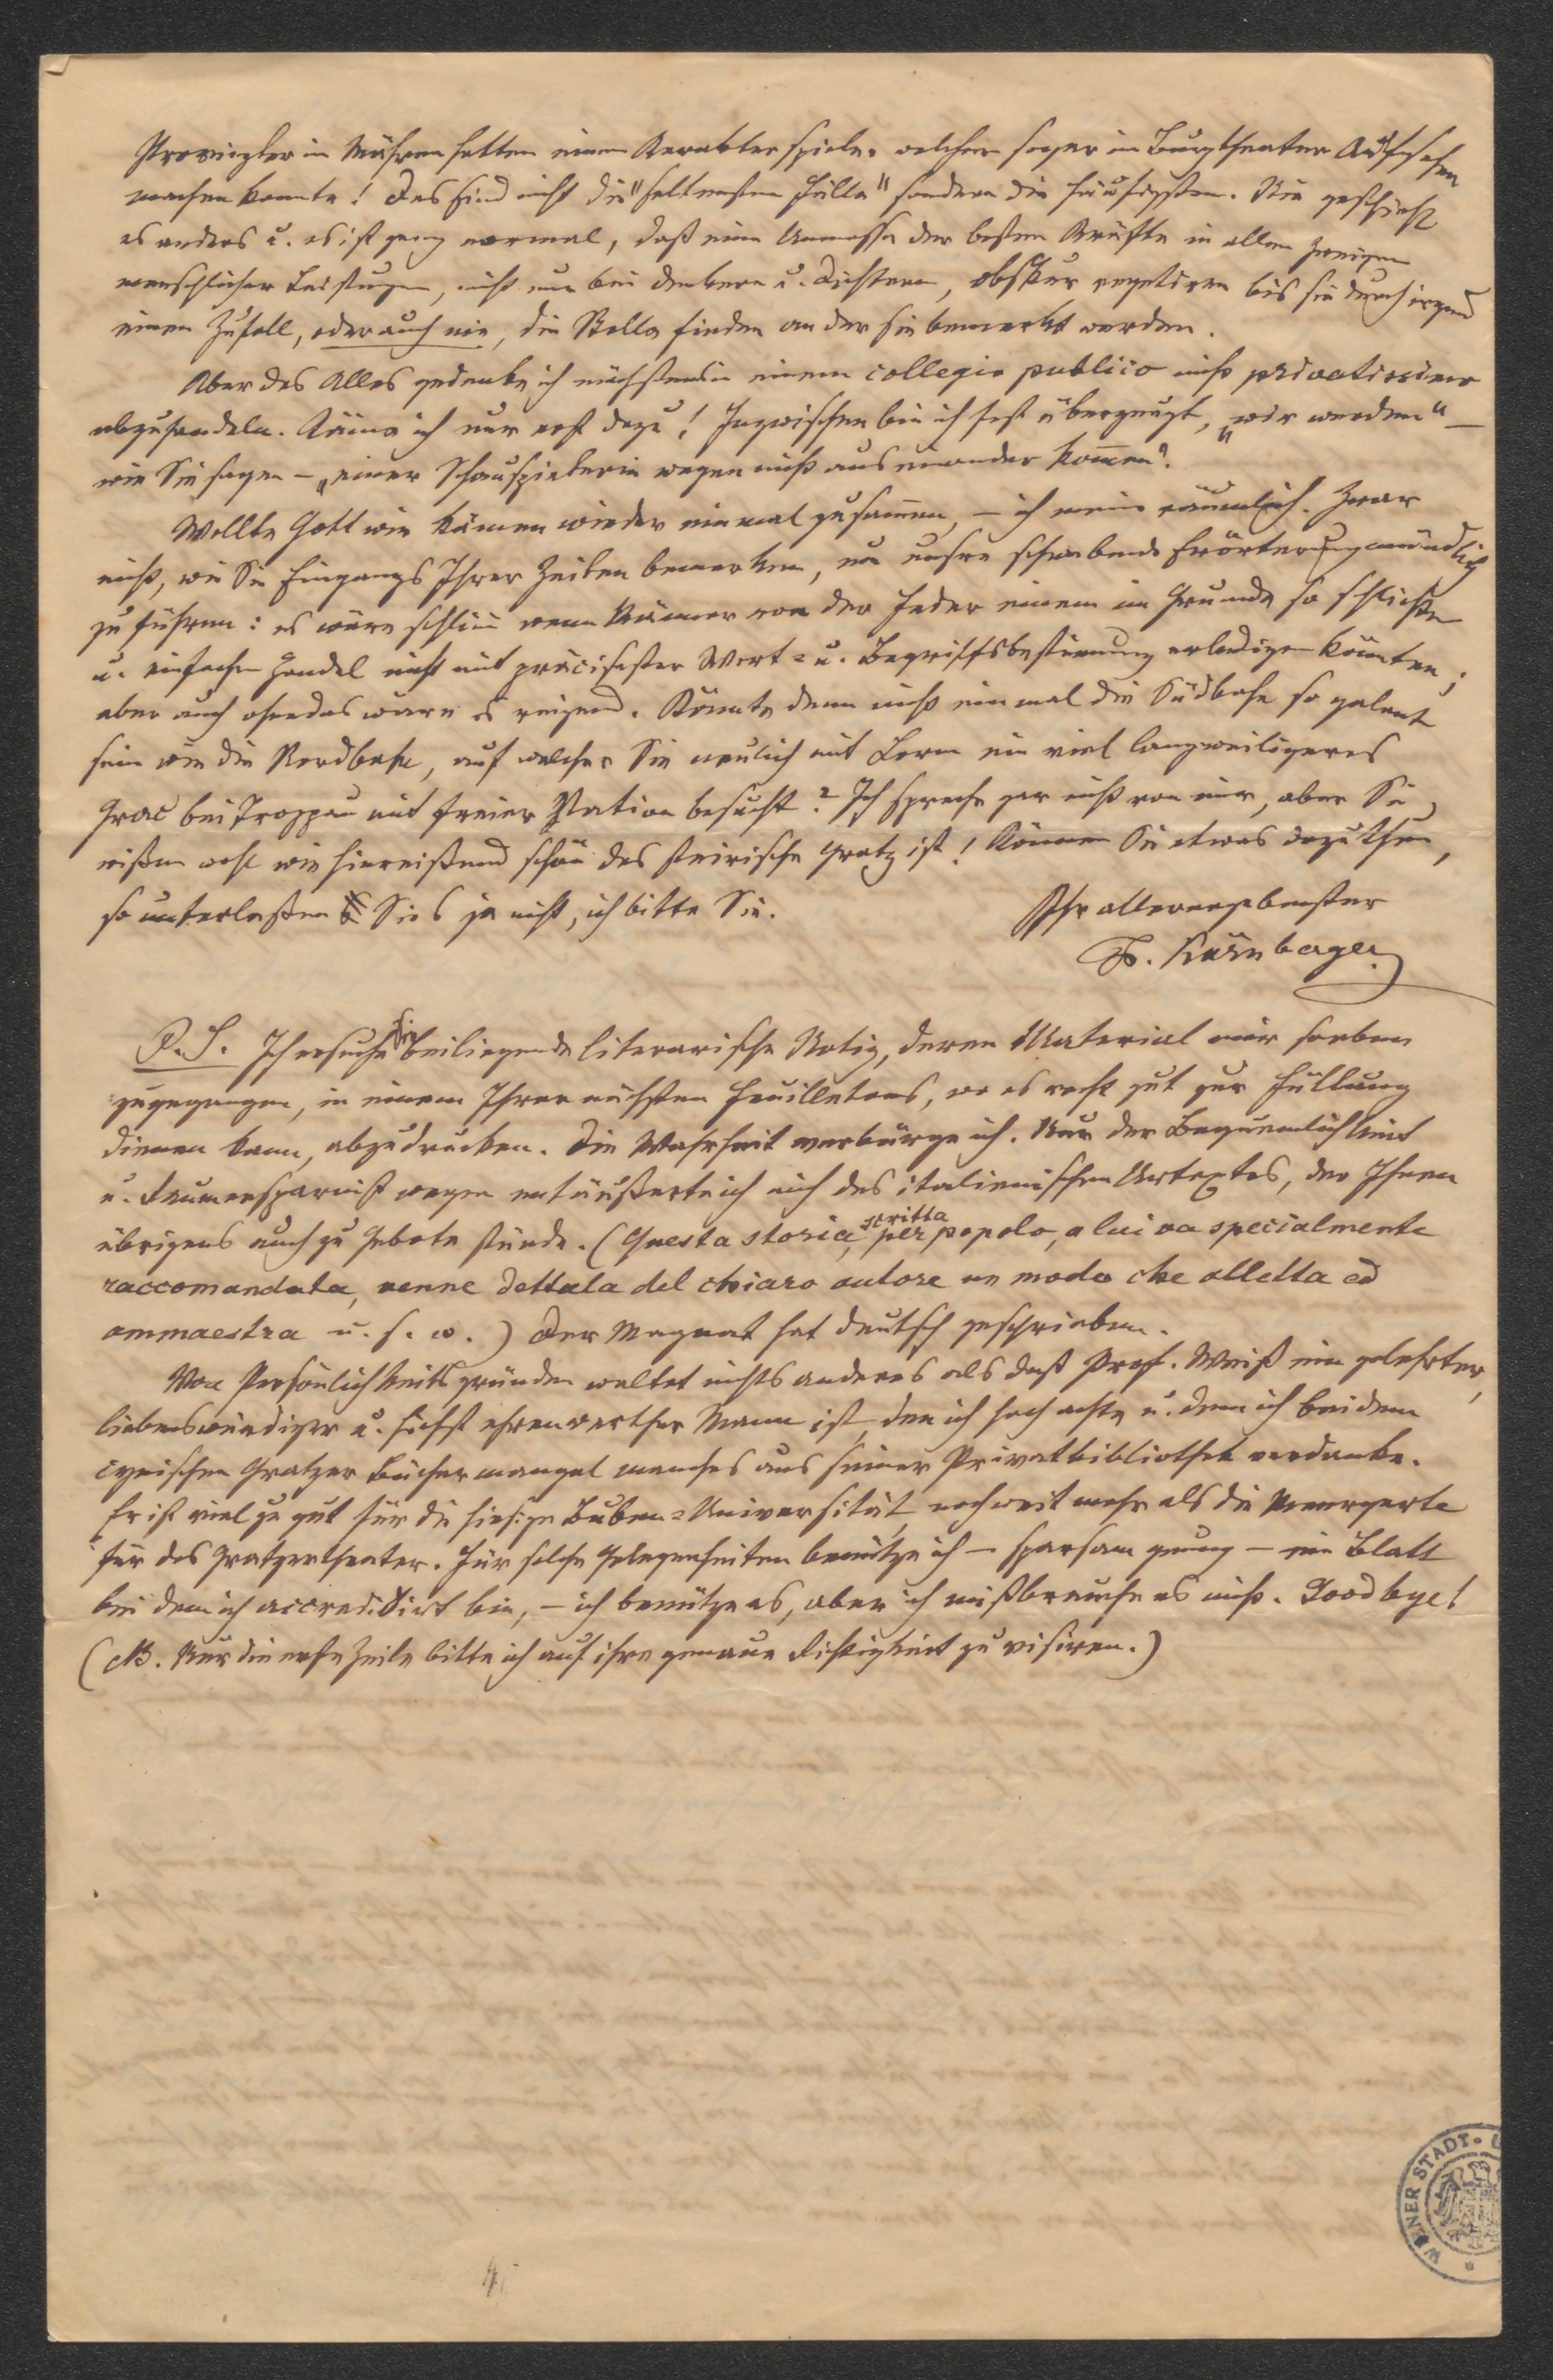 Provinzler in Mähren hatten einen Karakterspieler welcher sogar im Burgtheater Aufsehen
machen konnte! Das sind nicht die "seltensten Fälle" sondern die häufigsten. Nie geschieht
es anders u. es ist ganz normal, daß eine Unmasse der besten Kräfte in allen Zweigen
menschlicher Leistungen, nicht nur bei Denkern u. Dichtern, obskur vegetiren bis sie durch irgend
einen Zufall, oder auch nie, die Stelle finden an der sie bemerkt werden.
Aber das Alles gedenke ich nächstens in einem collegio publico nicht privatissimo
abzuhandeln. Käme ich nur erst dazu! Inzwischen bin ich fest überzeugt, „wir werden" –
wie Sie sagen – „einer Schauspielerin wegen nicht auseinander kom̄en".
Wollte Gott wir kämen wieder einmal zusam̄en, – ich meine räumlich. Zwar
nicht, wie Sie Eingangs Ihrer Zeilen bemerken, um unsre schwebende Erörterung mündlich
zu führen: es wäre schlim̄ wenn Männer von der Feder einen im Grunde so schlichten
u. einfachen Handel nicht mit präcisester Wort= u. Begriffsbestim̄ung erledigen könnten;
aber auch ohne das wäre es reizend. Könnte denn nicht einmal die Südbahn so galant
sein wie die Nordbahn, auf welcher Sie neulich mit Lorm ein viel langweiligeres
Graz bei Troppau mit freier Station besucht? Ich spreche gar nicht von mir, aber Sie
wißen wohl wie hinreißend schön das steirische Gratz ist! Können Sie etwas dazu thun,
so unterlaßen Sie's ja nicht, ich bitte Sie.
Ihr allerergebenster
F. Kürnberger.
P.S. Ich ersuche Sie beiliegende literarische Notiz, deren Material mir soeben
zugegangen, in einem Ihrer nächsten Feuilletons, wo es recht gut zur Füllung
dienen kann, abzudrucken. Die Wahrheit verbürge ich. Nur der Bequemlichkeit
u. Raumersparniß wegen entäußerte ich mich des italienischen Urtextes, der Ihnen
übrigens auch zu Gebote stünde. (Questa storia, scritta per popolo, a lui va specialmente
raccomandata, venne dettata del chiaro autore un modo che alletta ed
ammaestra u. s. w.) Der Magnat hat deutsch geschrieben.
Von Persönlichkeitsgründen waltet nichts anderes als daß Prof. Weiß ein gelehrter,
liebenswürdiger u. höchst ehrenwerther Mann ist, den ich hoch achte u. dem ich bei dem
cynischen Gratzer Büchermangel manches aus seiner Privatbibliothek verdanke.
Er ist viel zu gut für die hiesige Buben=Universität, noch weit mehr als die
für das Gratzertheater. Für solche Gelegenheiten benütze ich – sparsam genug – ein Blatt
bei dem ich accreditirt bin, – ich benütze es, aber ich mißbrauche es nicht. Good bye!
(NB. Nur die erste Zeile bitte ich auf ihre genaue Richtigkeit zu visiren.)
WIENER STADT-
4